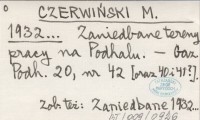 CZERWIŃSKI M.
1932... Zaniedbane tereny
pracy na Podhalu. — Gaz.
Podh. 20, nr 42 [oraz 40i41?].
zob. też: Zaniedbane 1932...